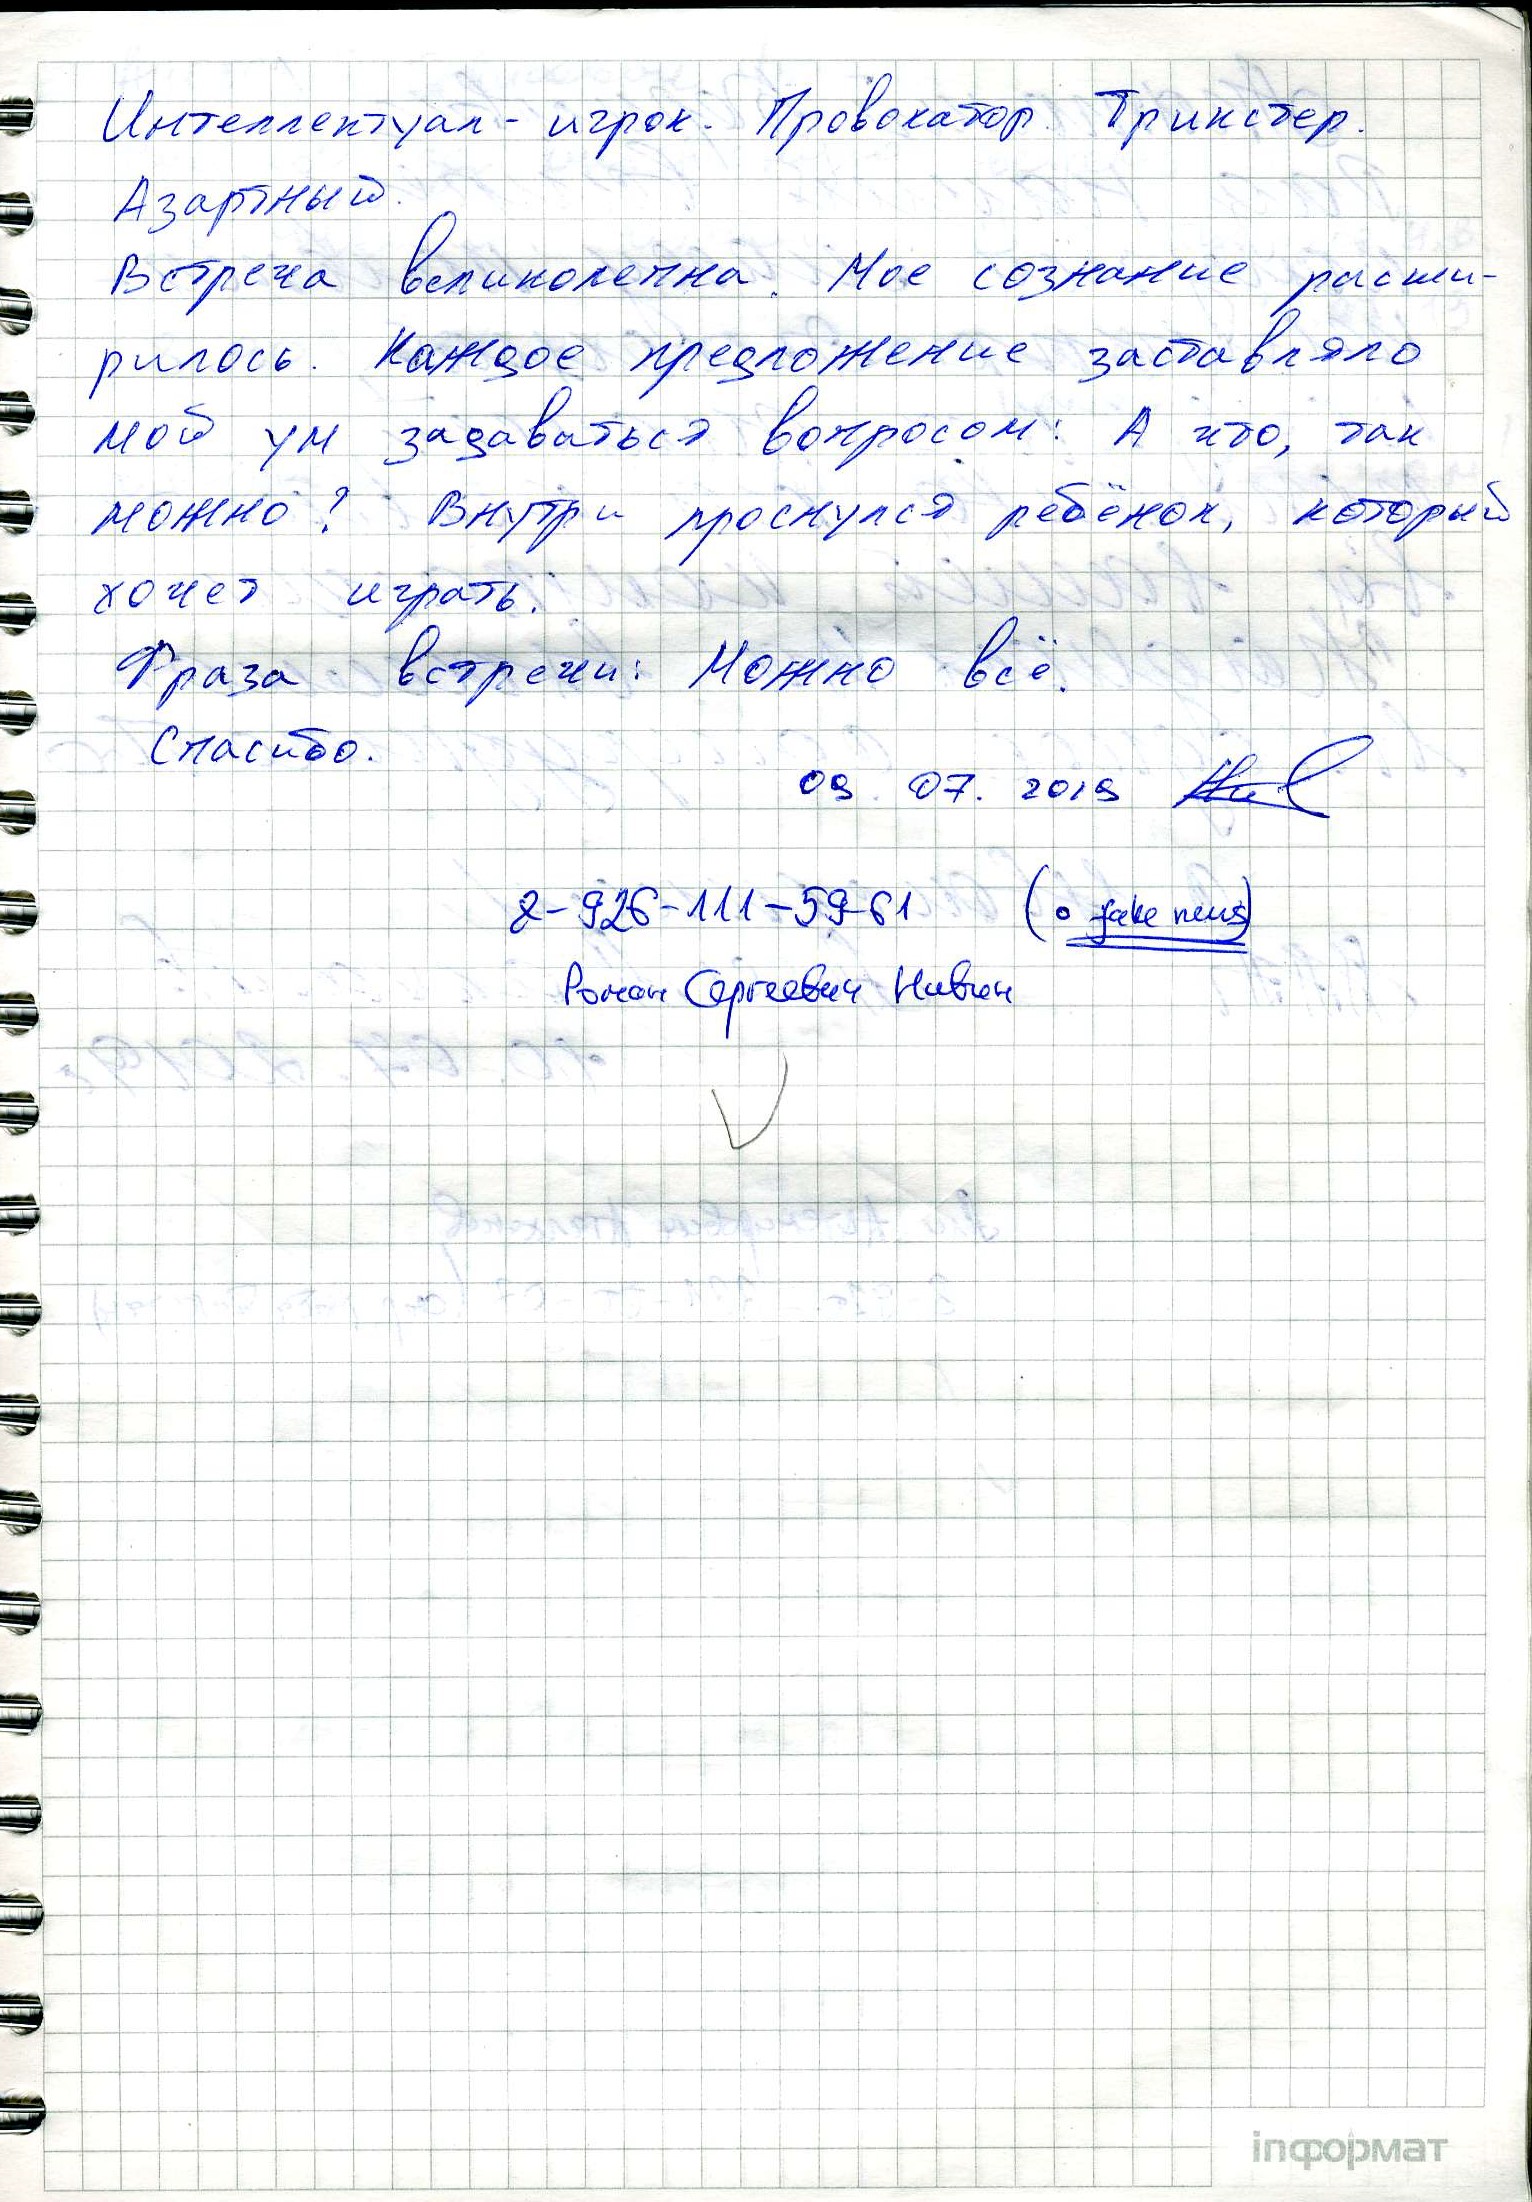 Интеллектуал - игрок. Провокатор. Трикстер.
Азартный.
Встреча великолепна. Мое сознание расши-
рилось. Каждое предложение заставляло
мой ум задаваться вопросом: А что, так
можно? Внутри проснулся ребёнок, который
хочет играть.
Фраза встречи: Можно всё.
Спасибо.
09. 07. 2019
8-926-111-59-61 (о fake news)
Роман Сергеевич Нивин
10.07.2019г.
inформат